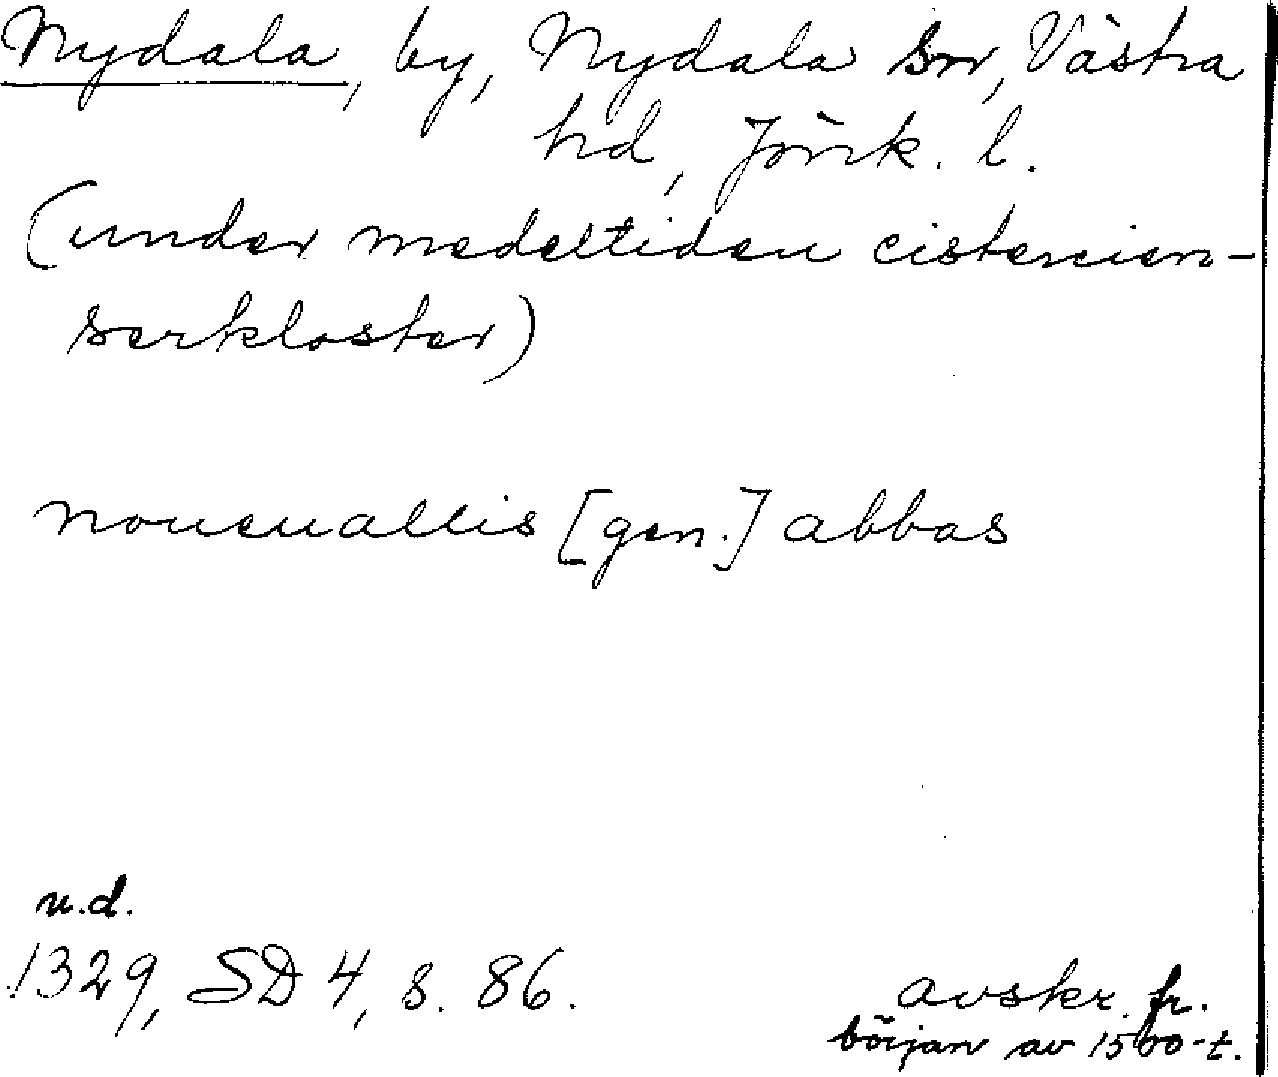 Nydala, by, Nydala sn, Västra
hd, Jönk. l.
(under medeltiden cistercien-
serkloster)
noueuallis [gen.] abbas
u.d.
1329, SD 4, s. 86.
avskr. fr.
början av 1500-t.